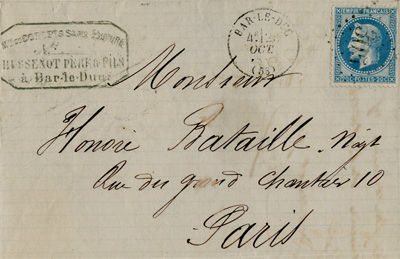 Mon DE CORSETS SANS COUTURE
HUSSENOT PÈRE & FILS
à Bar-le-Duc
BAR-LE-DUC
OCT
(53)
EMPIRE FRANÇAIS
20C POSTES 20C
Monsieur
Honoré Bataille Nég.t
Rue du grand chantier 10
Paris